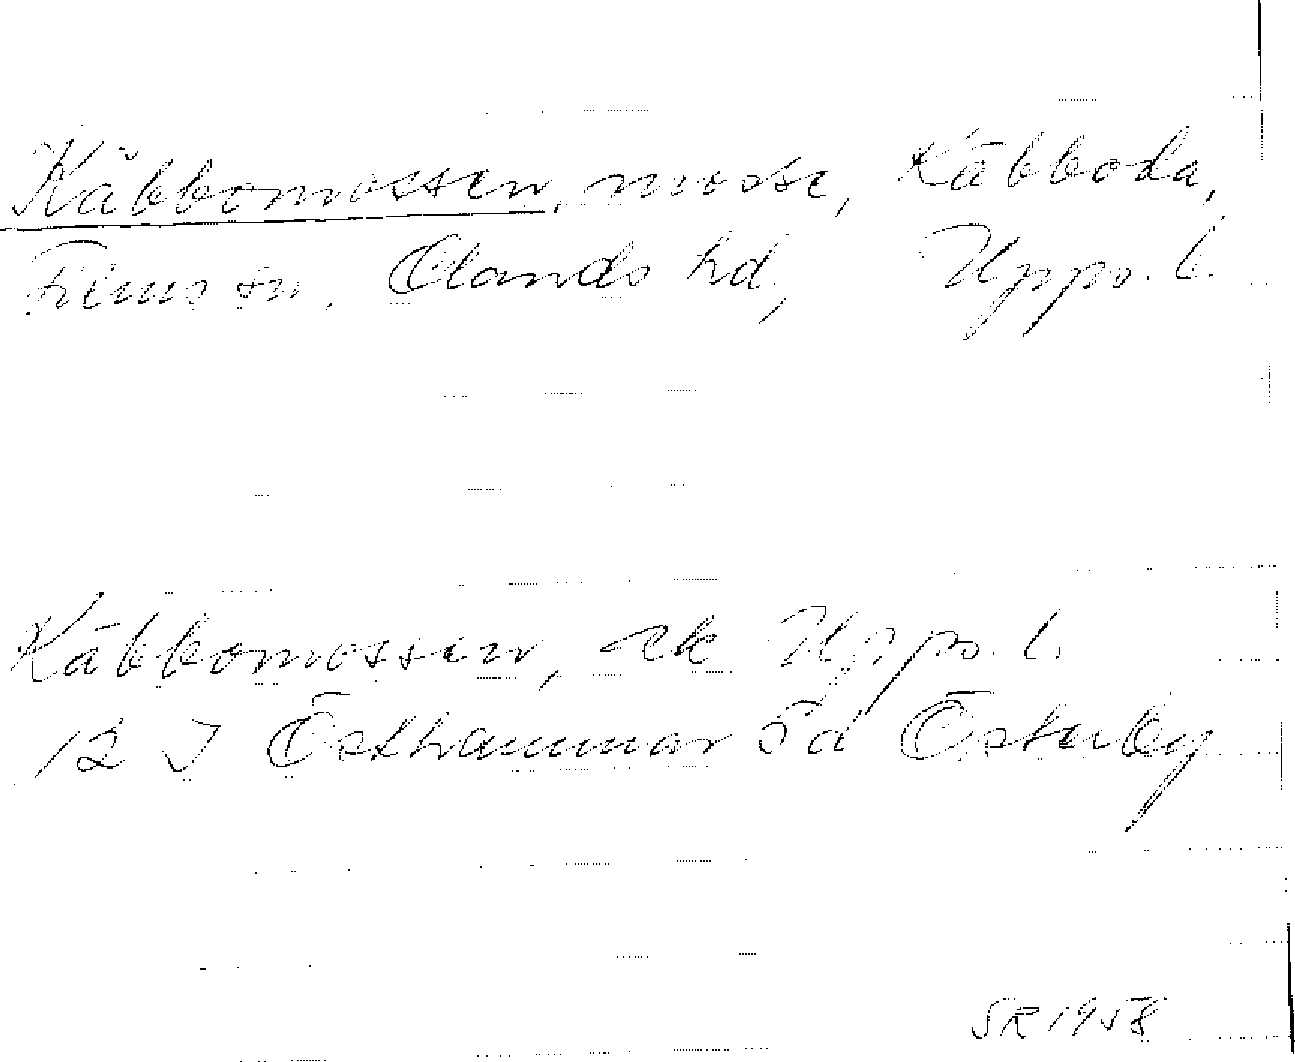 Käbbomossen, mosse, Käbboda,
Films sn, Olands hd, Upps. l.
Käbbomossen, ek Upps. l.
12 I Östhammar 5 d Österby
SR 1958